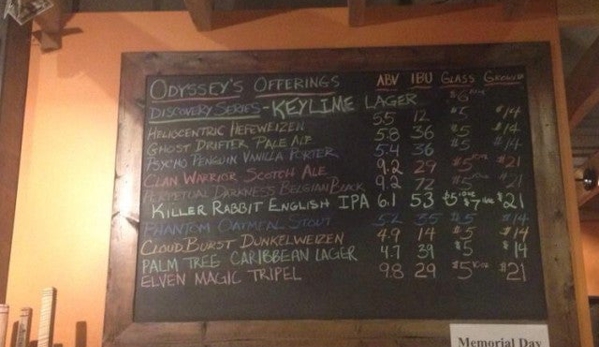 ODYSSEY'S OFFERINGS ABV IBU GLASS GROWLER
DISCOVERY SERIES - KEYLIME LAGER $6
HELIOCENTRIC HEFEWEIZEN 5.5 12 $5 $14
GHOST DRIFTER PALE ALE 5.8 36 $5 $14
PSYCHO PENGUIN VANILLA PORTER 5.4 36 $5 $14
CLAN WARRIOR SCOTCH ALE 9.2 29 $5 $21
PERPETUAL DARKNESS BELGIAN BLACK 9.2 72 $5 $21
KILLER RABBIT ENGLISH IPA 6.1 53 $5 $7 $21
PHANTOM OATMEAL STOUT 5.2 35 $5 $14
CLOUD BURST DUNKELWEIZEN 4.9 14 $5 $14
PALM TREE CARIBBEAN LAGER 4.7 39 $5 $14
ELVEN MAGIC TRIPEL 9.8 29 $5 $21
Memorial Day